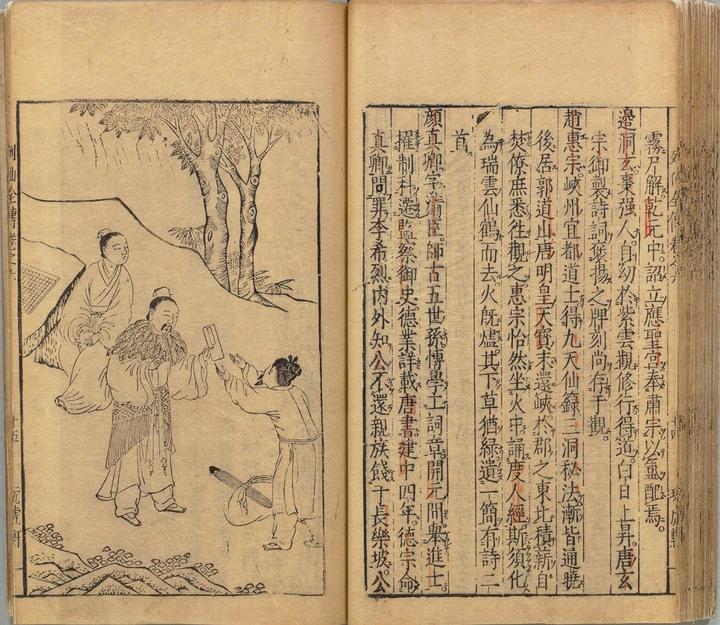 霧尸解乾元中詔立應聖宮奉肅宗以㝢配焉。
邊洞玄棗强人。自幼於紫雲觀修行得道。白日上昇。唐玄
宗御製詩詞褒揚之。牌刻尚存于觀。
趙惠宗峽州宜都道士得九天仙籙三洞秘法漸皆通曉
後居郭道山唐明皇天寶末還峽。於郡之東北積薪自
焚僚庶悉徃觀之惠宗怡然坐火中。誦度人經斯須化
為瑞雲仙鶴而去火既燼。其下草猶綠遺一簡有詩二
首。
顔真卿字清臣。師古五世孫博學工詞章開元間舉進士。
擢制科遷監察御史德業詳載唐書建中四年。德宗命
真卿問罪李希烈内外知公不還親族餞于長樂坡。公
列仙全傳卷之六
十五
玩虎軒